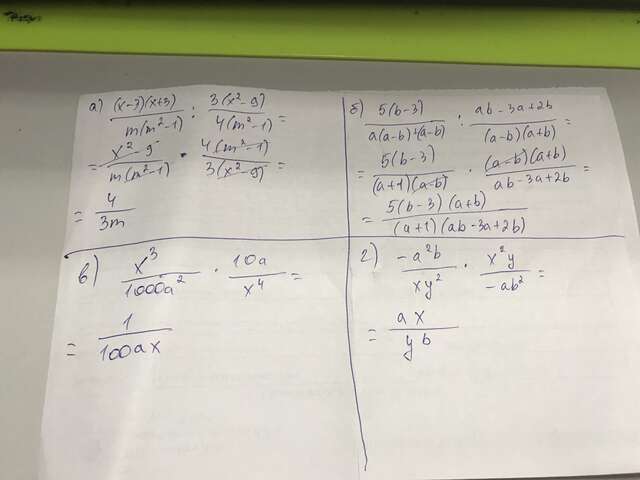 а) (x-3)(x+3)/m(m²-1) : 3(x²-9)/4(m²-1) =
= x²-9/m(m²-1) · 4(m²-1)/3(x²-9) =
= 4/3m
б) 5(b-3)/a(a-b)+(a-b) : ab-3a+2b/(a-b)(a+b) =
= 5(b-3)/(a+1)(a-b) · (a-b)(a+b)/ab-3a+2b =
= 5(b-3)(a+b)/(a+1)(ab-3a+2b)
в) x³/1000a² · 10a/x⁴ =
= 1/100ax
г) -a²b/xy² · x²y/-ab² =
= ax/yb